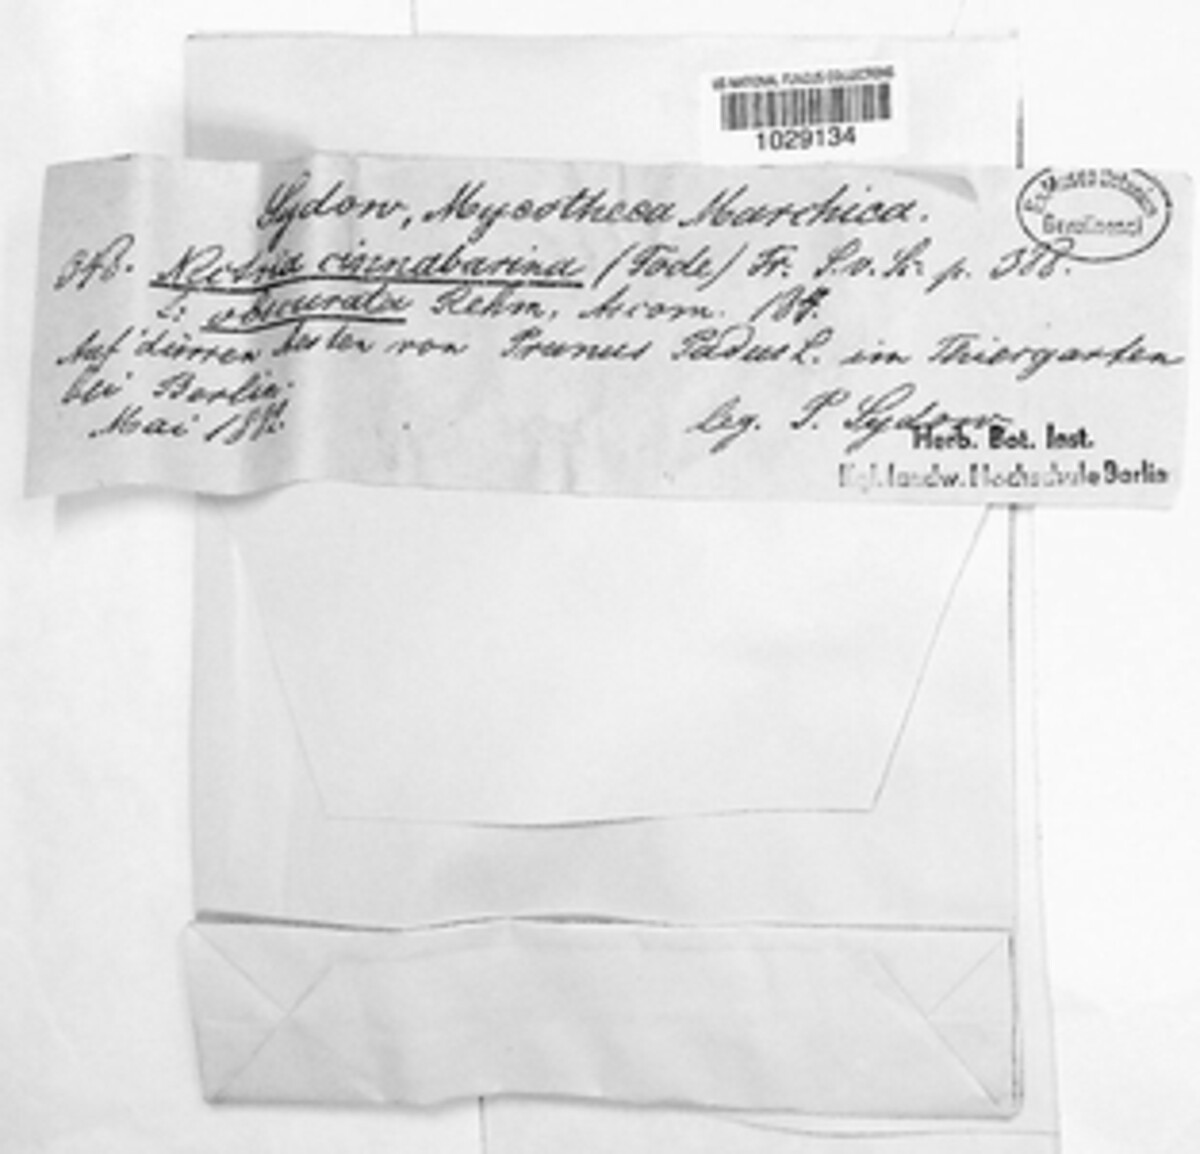 US NATIONAL FUNGUS COLLECTIONS
1029134
Sydow, Mycotheca Marchica.
Nectria cinnabarina (Tode) Fr. S. v. S. p. 388.
Rehm, Ascom.
Auf dürren Aesten von Prunus Padus L. im Thiergarten
bei Berlin.
Mai
leg. P. Sydow
Herb. Bot. Inst.
Kgl. landw. Hochschule Berlin